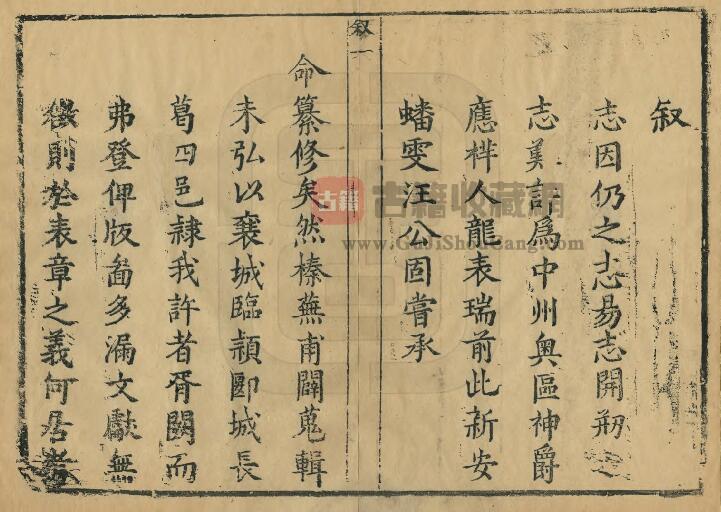 叙
志因仍之志易志開剏之
志美許爲中州奥區神爵
應祥人龍表瑞前此新安
蟠雯汪公固嘗承
叙一
命纂修矣然榛蕪甫闢蒐輯
未弘以襄城臨潁郾城長
葛四邑隷我許者胥闕而
弗登俾版啚多漏文獻無
徵則於表章之義何居
古籍 古籍收藏網
www.GuJiShouCang.com